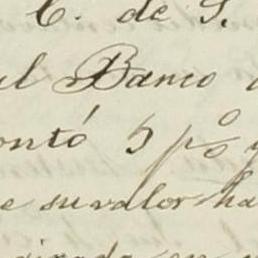 C. de S.
el Banco
ontó 5 p%
e su valor ha